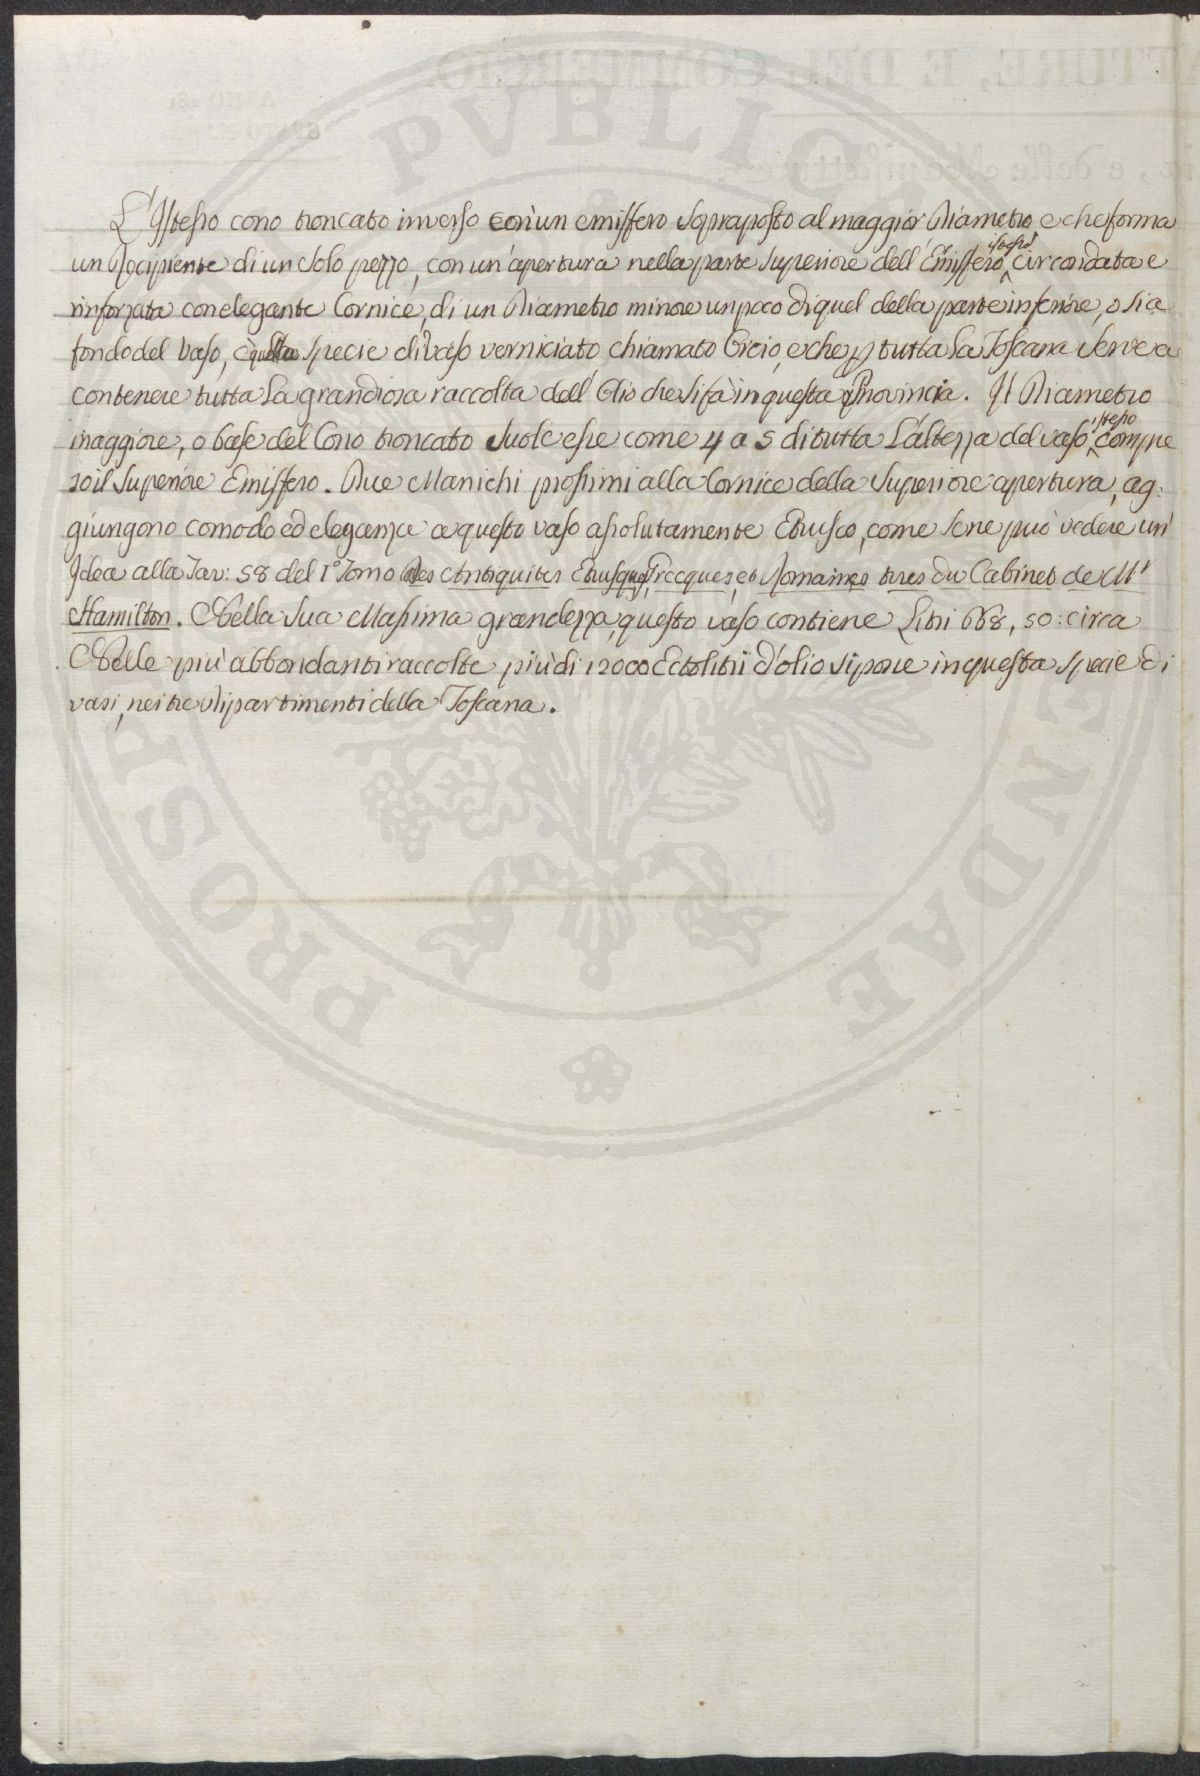 L'Istesso cono troncato inverso con un emisfero sopraposto al maggior Diametro e che forma
un Recipiente di un solo pezzo, con un'apertura nella parte superiore dell'Emisfero istesso, circondata e
rinforzata con elegante Cornice, di un Diametro minore un poco di quel della parte inferiore, o sia
fondo del Vaso, è quella specie di vaso verniciato, chiamato Orcio, e che p tutta la Toscana serve a
contenere tutta la grandiosa raccolta dell'Olio che si fà in questa Provincia. Il Diametro
maggiore, o base del Cono troncato suole essre come 4 a 5 di tutta l'altezza del vaso istesso compre
so il superiore Emisfero. Due Manichi prossimi alla Cornice della superiore apertura, ag:
giungono comodo ed eleganza a questo vaso assolutamente Etrusco, come se ne può vedere un'
Idea alla Tav: 58 del 1° Tomo des Antiquites Etrusques, Grecques, et Romaines tires du Cabinet de Mr
Hamilton. Nella sua Massima grandezza, questo vaso contiene Litri 668, 50: circa
Nelle più abbondanti raccolte più di 12000 Ectolitri d'olio si pone in questa specie di
vasi, nei tre Dipartimenti della Toscana.
PVBLICAE
PROSPE
ENDAE